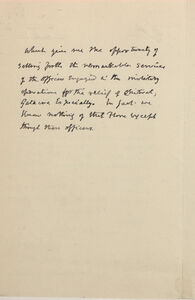 which give me the opportunity of
setting forth the remarkable services
of the officers engaged in the military
operations for the relief of Chitral,
Gatacre especially. In fact we
know nothing of that Force except
through these officers.